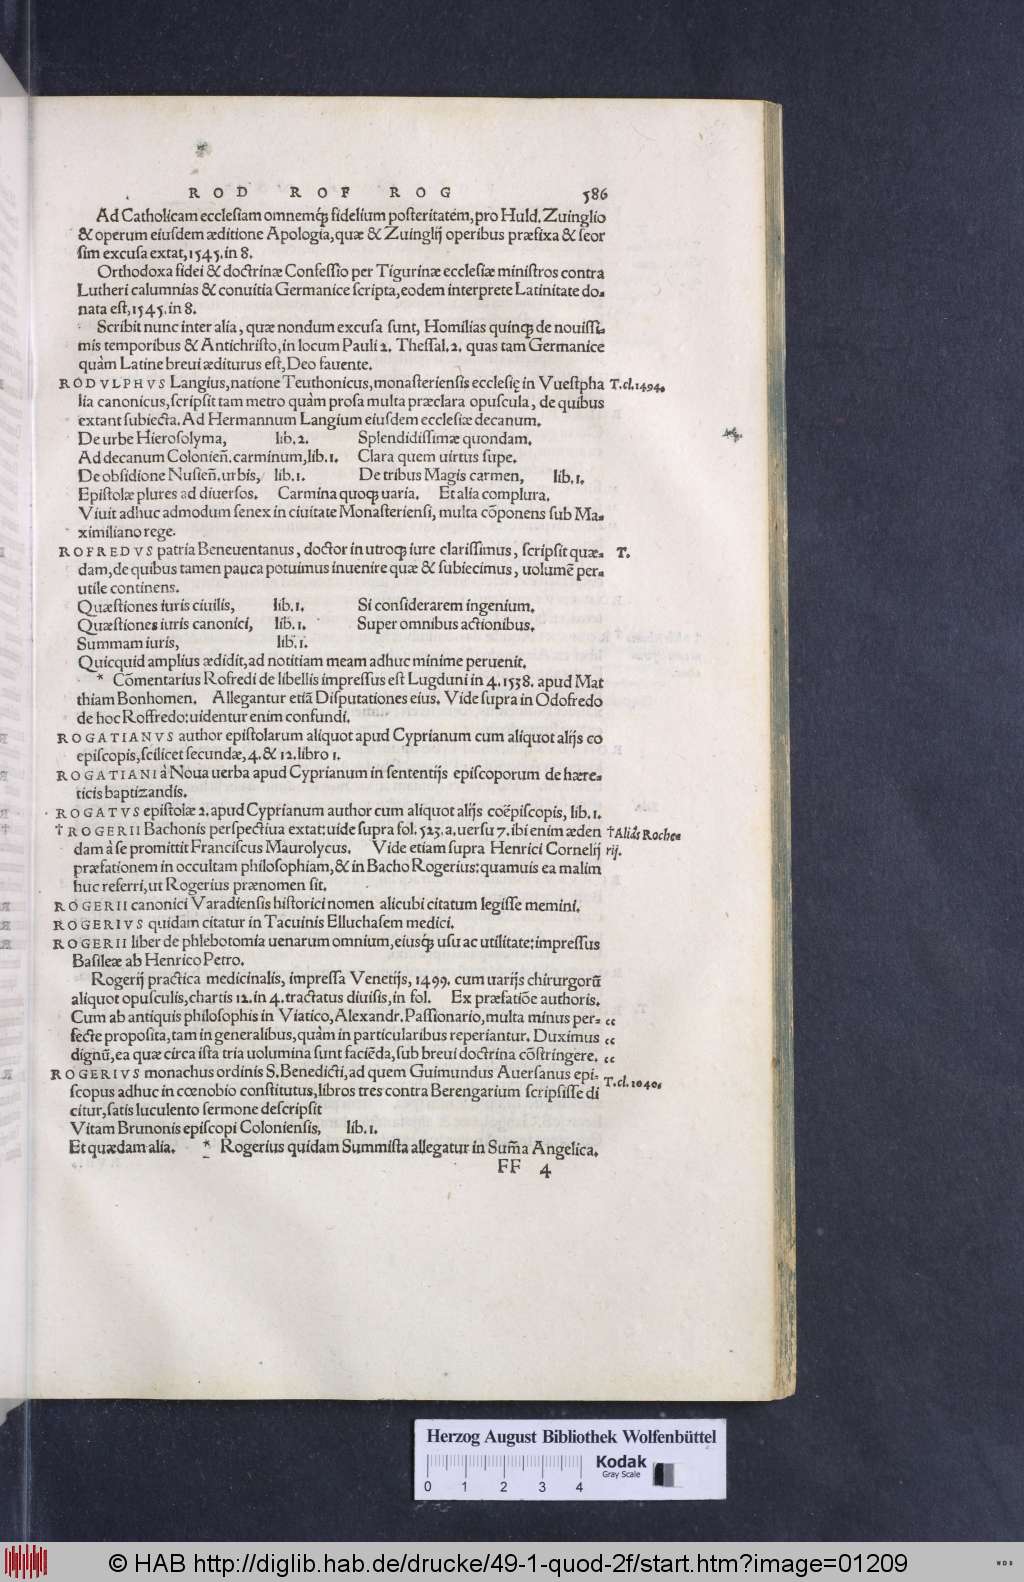 ROD ROF ROG 586
Ad Catholicam ecclesiam omnemq́; fidelium posteritatem, pro Huld. Zuinglio
& operum eiusdem æditione Apologia, quæ & Zuinglij operibus præfixa & seor
sim excusa extat, 1545. in 8.
Orthodoxa fidei & doctrinæ Confessio per Tigurinæ ecclesiæ ministros contra
Lutheri calumnias & conuitia Germanice scripta, eodem interprete Latinitate do-
nata est, 1545. in 8.
Scribit nunc inter alia, quæ nondum excusa sunt, Homilias quinq; de nouissi-
mis temporibus & Antichristo, in locum Pauli 2. Thessal. 2. quas tam Germanice
quàm Latine breui æditurus est, Deo fauente.
RODVLPHVS Langius, natione Teuthonicus, monasteriensis ecclesię in Vuestpha T. cl. 1494.
lia canonicus, scripsit tam metro quàm prosa multa præclara opuscula, de quibus
extant subiecta. Ad Hermannum Langium eiusdem ecclesiæ decanum.
De urbe Hierosolyma, lib. 2. Splendidissimæ quondam.
Ad decanum Colonieñ. carminum, lib. 1. Clara quem uirtus supe.
De obsidione Nusieñ. urbis, lib. 1. De tribus Magis carmen, lib. 1.
Epistolæ plures ad diuersos. Carmina quoq; uaria. Et alia complura.
Viuit adhuc admodum senex in ciuitate Monasteriensi, multa cõponens sub Ma-
ximiliano rege.
ROFREDVS patria Beneuentanus, doctor in utroq; iure clarissimus, scripsit quæ- T.
dam, de quibus tamen pauca potuimus inuenire quæ & subiecimus, uolumẽ per-
utile continens.
Quæstiones iuris ciuilis, lib. 1. Si considerarem ingenium.
Quæstiones iuris canonici, lib. 1. Super omnibus actionibus.
Summam iuris, lib. 1.
Quicquid amplius ædidit, ad notitiam meam adhuc minime peruenit.
* Cõmentarius Rofredi de libellis impressus est Lugduni in 4. 1538. apud Mat
thiam Bonhomen. Allegantur etiã Disputationes eius. Vide supra in Odofredo
de hoc Roffredo: uidentur enim confundi.
ROGATIANVS author epistolarum aliquot apud Cyprianum cum aliquot alijs co
episcopis, scilicet secundæ, 4. & 12. libro 1.
ROGATIANI à Noua uerba apud Cyprianum in sententijs episcoporum de hære-
ticis baptizandis.
ROGATVS epistolæ 2. apud Cyprianum author cum aliquot alijs coẽpiscopis, lib. 1.
† ROGERII Bachonis perspectiua extat: uide supra fol. 523. a. uersu 7. ibi enim æden † Aliàs Roche-
dam à se promittit Franciscus Maurolycus. Vide etiam supra Henrici Cornelij rij.
præfationem in occultam philosophiam, & in Bacho Rogerius: quamuis ea malim
huc referri, ut Rogerius prænomen sit.
ROGERII canonici Varadiensis historici nomen alicubi citatum legisse memini.
ROGERIVS quidam citatur in Tacuinis Elluchasem medici.
ROGERII liber de phlebotomia uenarum omnium, eiusq́; usu ac utilitate: impressus
Basileæ ab Henrico Petro.
Rogerij practica medicinalis, impressa Venetijs, 1499. cum uarijs chirurgorũ
aliquot opusculis, chartis 12. in 4. tractatus diuisis, in fol. Ex præfatiõe authoris.
Cum ab antiquis philosophis in Viatico, Alexandr. Passionario, multa minus per- “
fecte proposita, tam in generalibus, quàm in particularibus reperiantur. Duximus “
dignũ, ea quæ circa ista tria uolumina sunt faciẽda, sub breui doctrina cõstringere. “
ROGERIVS monachus ordinis S. Benedicti, ad quem Guimundus Auersanus epi- T. cl. 1040.
scopus adhuc in cœnobio constitutus, libros tres contra Berengarium scripsisse di
citur, satis luculento sermone descripsit
Vitam Brunonis episcopi Coloniensis, lib. 1.
Et quædam alia. * Rogerius quidam Summista allegatur in Sum̃a Angelica.
FF 4
Herzog August Bibliothek Wolfenbüttel
Kodak
Gray Scale
0 1 2 3 4
© HAB http://diglib.hab.de/drucke/49-1-quod-2f/start.htm?image=01209
WDB